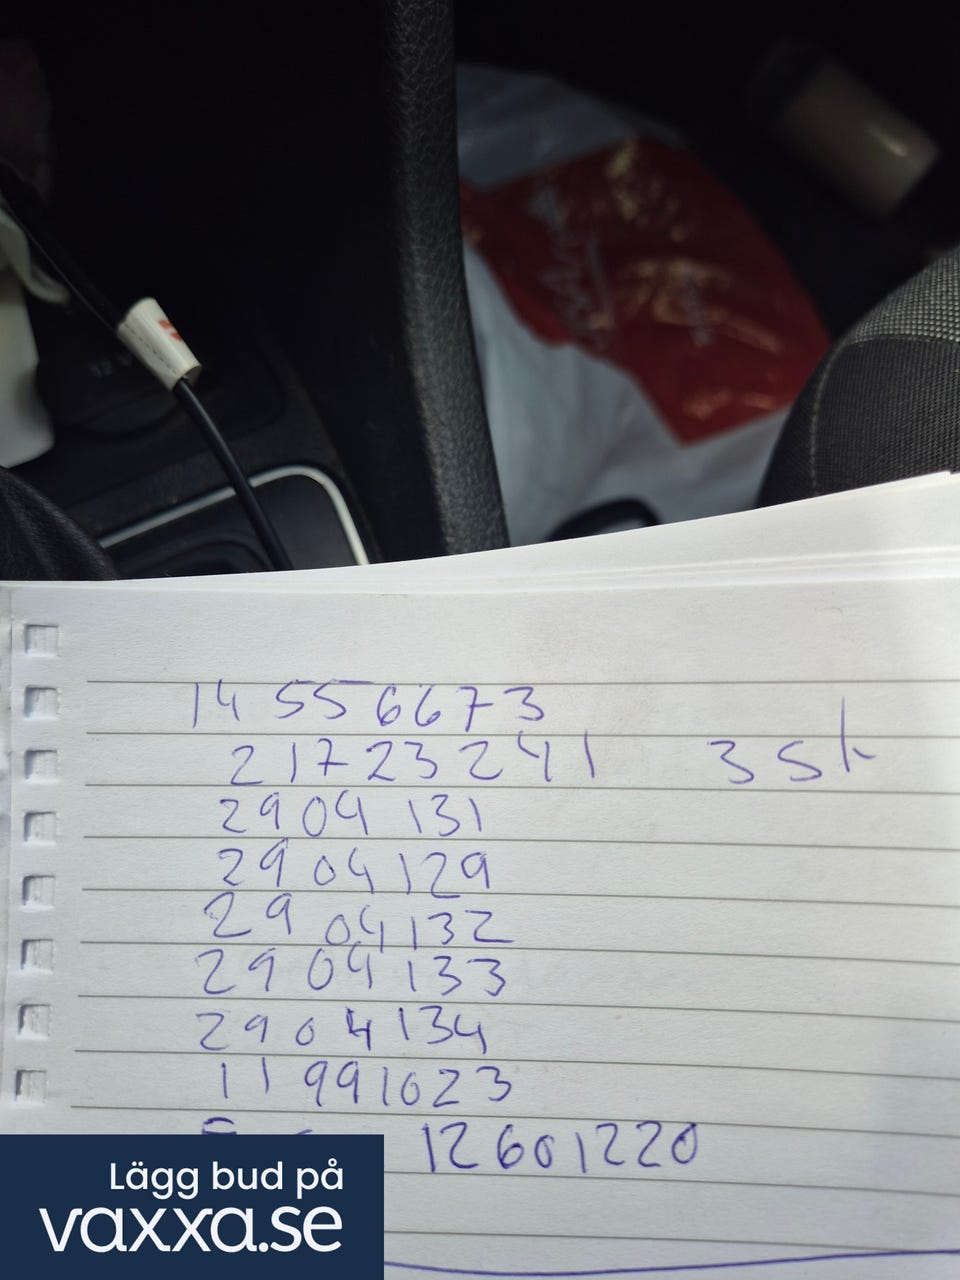 14 556673
21723241 3 st
2904 131
29 04 129
29 04132
29 04 133
29 0 4 134
11 991023
12601220
Lägg bud på
vaxxa.se